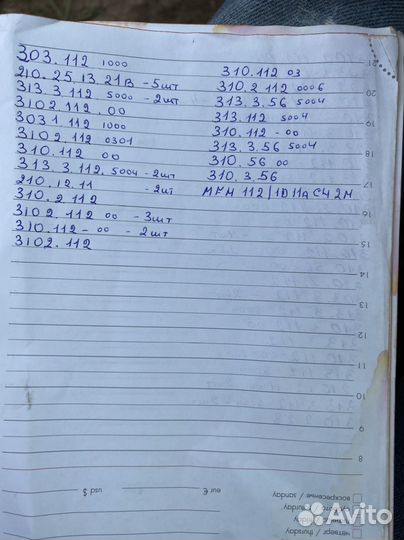 303.112 1000
210.25.13.21В -5шт
313.3.112 5000 -2шт
3102.112.00
303.1.112 1000
3102.112 0301
310.112 00
313.3.112.5004 -2шт
210.12.11 -2шт
310.2.112
3102.112 00 -3шт
310.112-00 -2шт
3102.112
310.112 03
310.2.112 0006
313.3.56 5004
313.112 5004
310.112-00
313.3.56 5004
310.56 00
310.3.56
21
20
19
18
17
16
15
14
13
12
11
10
9
8
usd $
eur €
воскресенье / sunday
четверг / thursday
Avito